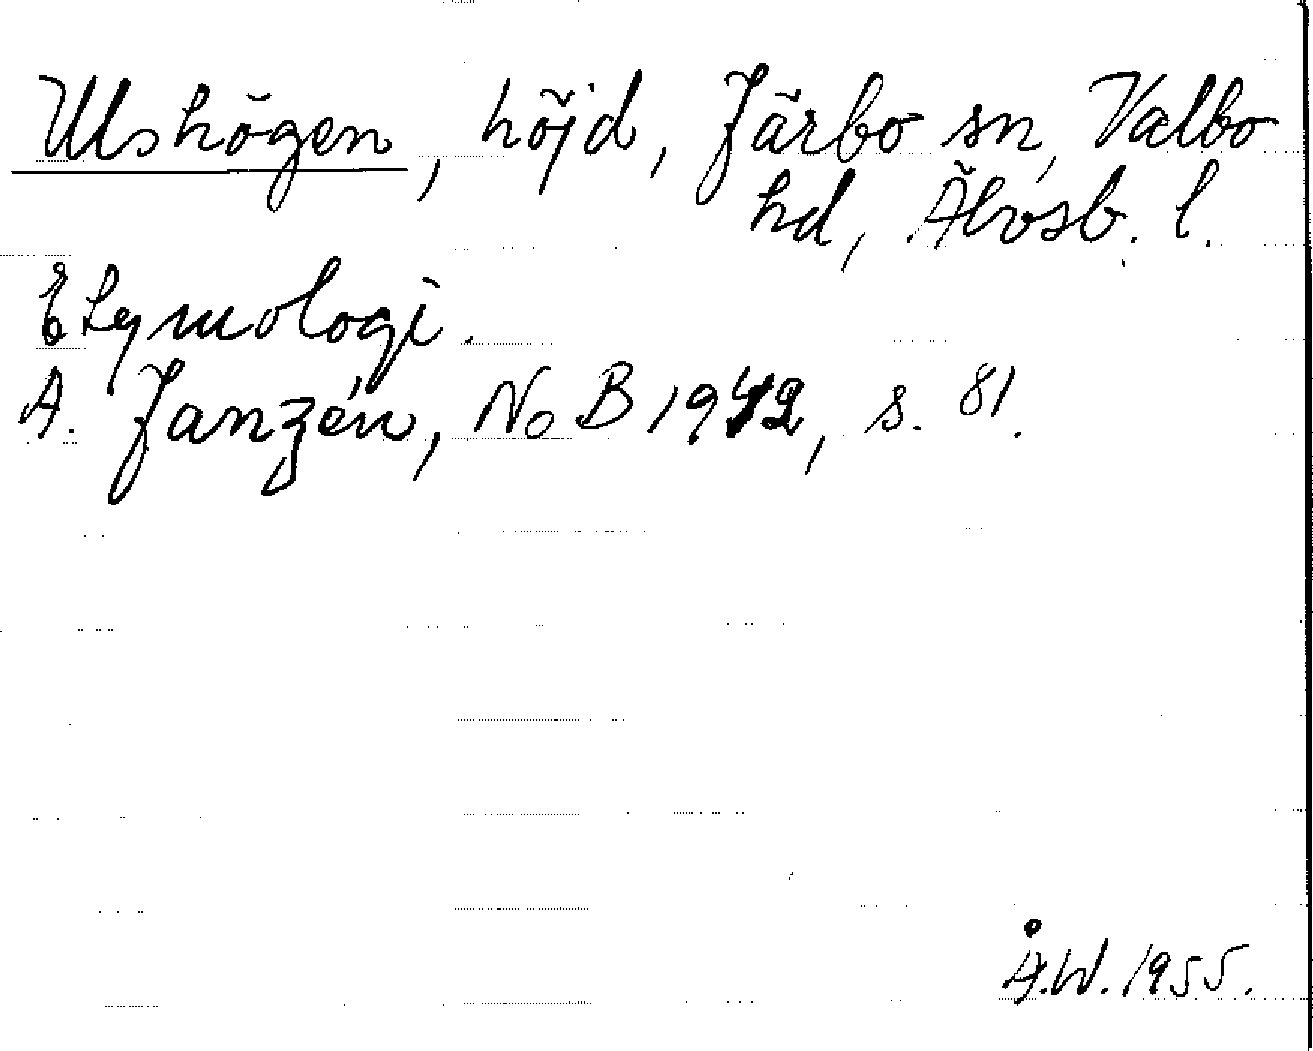 Ulshögen, höjd, Järbo sn, Valbo
hd, Älvsb. l.
Etymologi.
A. Janzén, NoB 1942, s. 81.
Å.W. 1955.